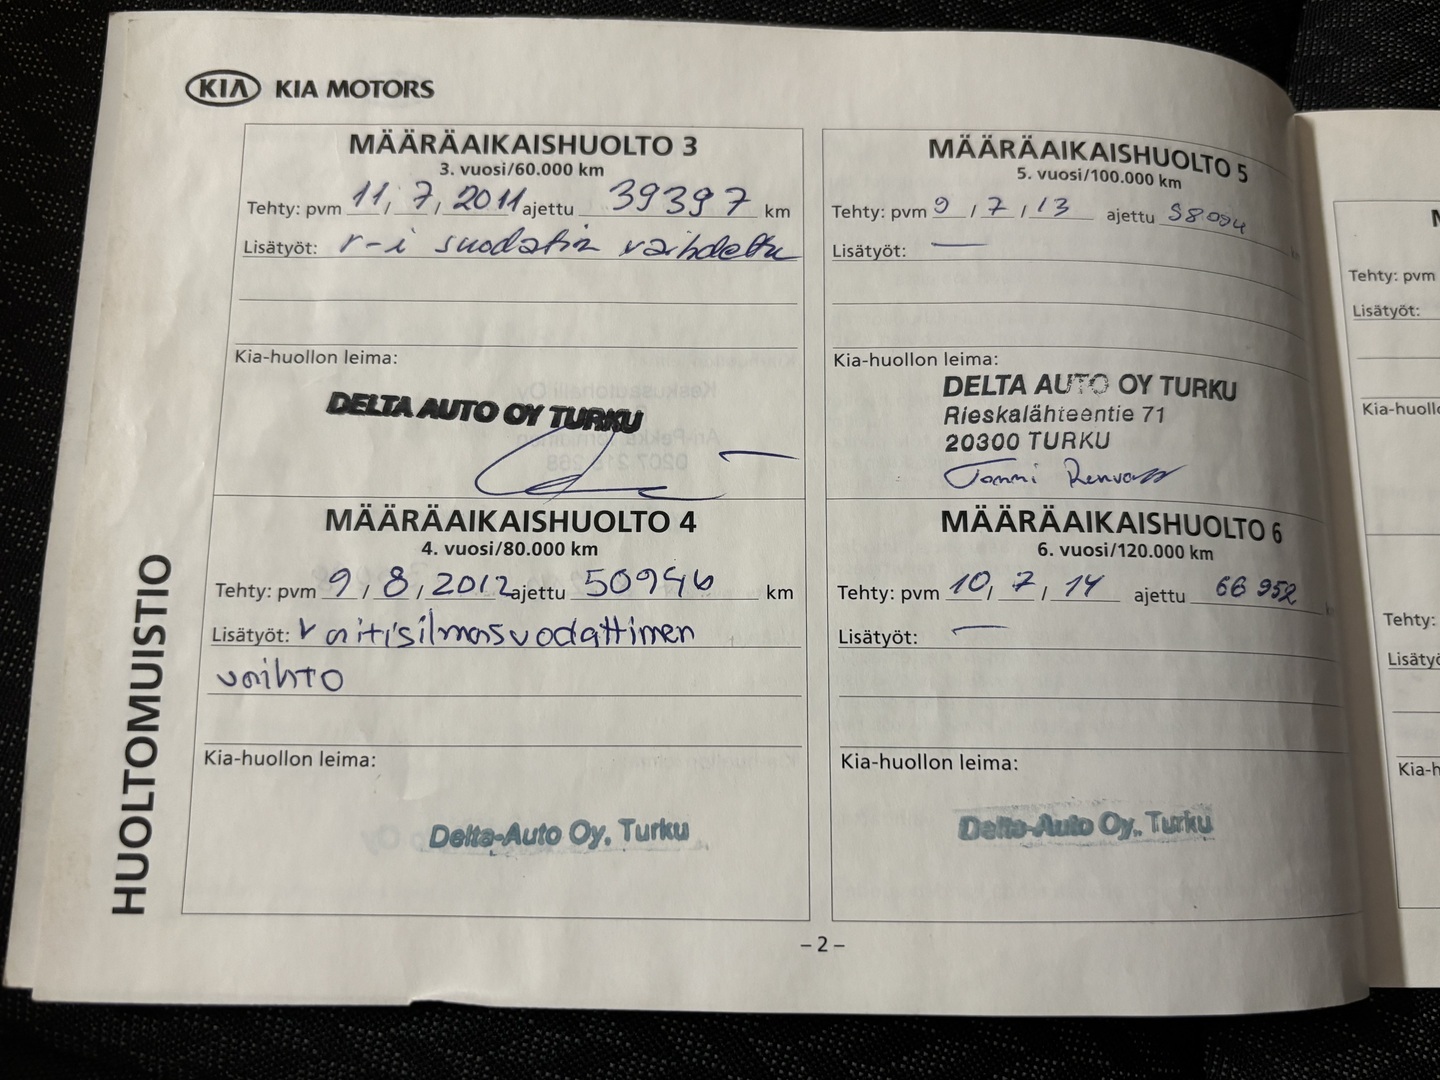 KIA KIA MOTORS
HUOLTOMUISTIO
MÄÄRÄAIKAISHUOLTO 3
3. vuosi/60.000 km
Tehty: pvm 11, 7, 2011 ajettu 39397 km
Lisätyöt: r-i suodatin vaihdettu
Kia-huollon leima:
DELTA AUTO OY TURKU
MÄÄRÄAIKAISHUOLTO 4
4. vuosi/80.000 km
Tehty: pvm 9 / 8 / 2012 ajettu 50946 km
Lisätyöt: raitisilmasuodattimen
vaihto
Kia-huollon leima:
Delta-Auto Oy, Turku
MÄÄRÄAIKAISHUOLTO 5
5. vuosi/100.000 km
Tehty: pvm 9 / 7 / 13 ajettu 58094
Lisätyöt: —
Kia-huollon leima:
DELTA AUTO OY TURKU
Rieskalähteentie 71
20300 TURKU
Tommi
MÄÄRÄAIKAISHUOLTO 6
6. vuosi/120.000 km
Tehty: pvm 10, 7 / 14 ajettu 66 952
Lisätyöt: —
Kia-huollon leima:
Delta-Auto Oy, Turku
– 2 –
Tehty: pvm
Lisätyöt:
Tehty: